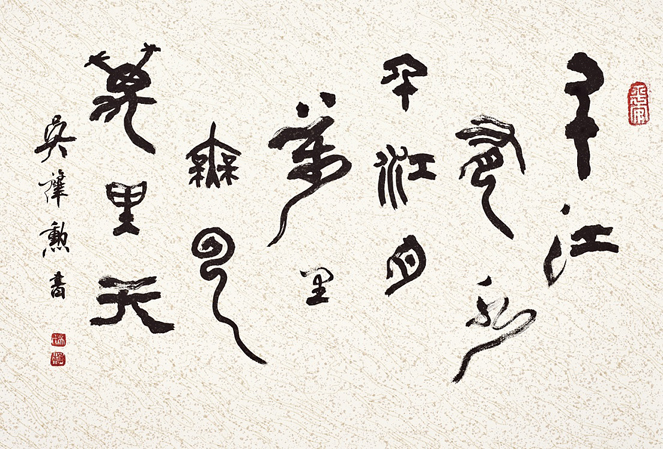 千江
有水
千江月
萬里
無雲
萬里天
吳勳書